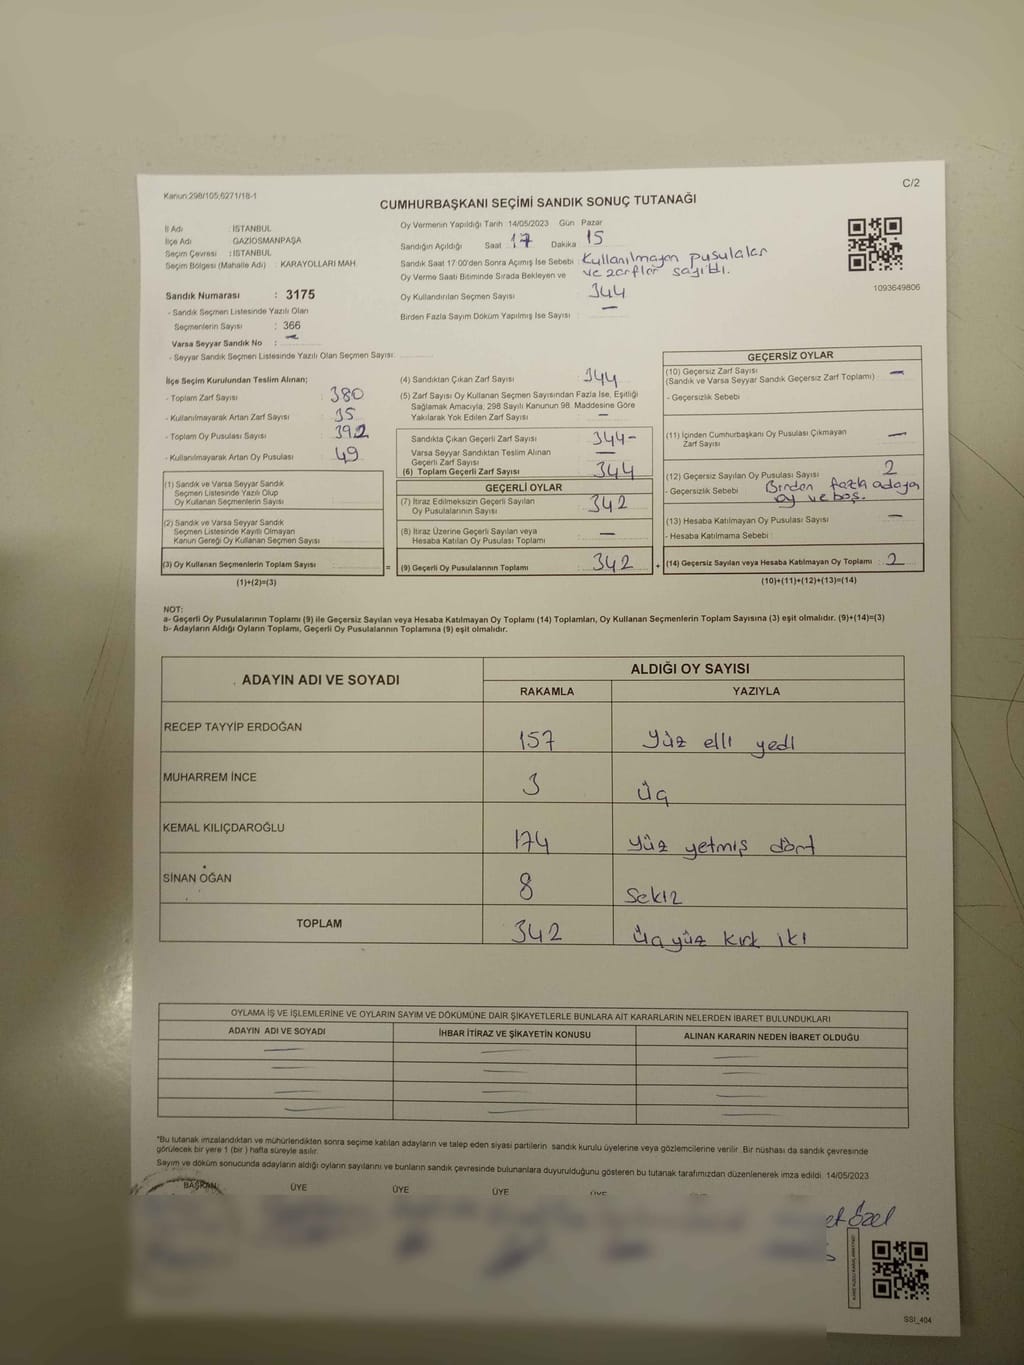 Kanun:298/105,6271/18-1
C/2
CUMHURBAŞKANI SEÇİMİ SANDIK SONUÇ TUTANAĞI
İl Adı : İSTANBUL
İlçe Adı : GAZİOSMANPAŞA
Seçim Çevresi : İSTANBUL
Seçim Bölgesi (Mahalle Adı) : KARAYOLLARI MAH.
Oy Vermenin Yapıldığı Tarih 14/05/2023 Gün Pazar
Sandığın Açıldığı Saat 17 Dakika 15
Sandık Saat 17:00'den Sonra Açımış İse Sebebi : Kullanılmayan pusulalar
Oy Verme Saati Bitiminde Sırada Bekleyen ve ve zarflar sayıldı.
Oy Kullandırılan Seçmen Sayısı 344
Birden Fazla Sayım Döküm Yapılmış İse Sayısı : —
1093649806
Sandık Numarası : 3175
- Sandık Seçmen Listesinde Yazılı Olan
Seçmenlerin Sayısı : 366
Varsa Seyyar Sandık No : —
- Seyyar Sandık Seçmen Listesinde Yazılı Olan Seçmen Sayısı:
İlçe Seçim Kurulundan Teslim Alınan;
- Toplam Zarf Sayısı : 380
- Kullanılmayarak Artan Zarf Sayısı : 35
- Toplam Oy Pusulası Sayısı : 392
- Kullanılmayarak Artan Oy Pusulası : 49
(1) Sandık ve Varsa Seyyar Sandık
Seçmen Listesinde Yazılı Olup
Oy Kullanan Seçmenlerin Sayısı :
(2) Sandık ve Varsa Seyyar Sandık
Seçmen Listesinde Kayıtlı Olmayan
Kanun Gereği Oy Kullanan Seçmen Sayısı :
(3) Oy Kullanan Seçmenlerin Toplam Sayısı :
(1)+(2)=(3)
(4) Sandıktan Çıkan Zarf Sayısı : 344
(5) Zarf Sayısı Oy Kullanan Seçmen Sayısından Fazla İse, Eşitliği
Sağlamak Amacıyla; 298 Sayılı Kanunun 98. Maddesine Göre
Yakılarak Yok Edilen Zarf Sayısı : —
Sandıkta Çıkan Geçerli Zarf Sayısı : 344-
Varsa Seyyar Sandıktan Teslim Alınan
Geçerli Zarf Sayısı : —
(6) Toplam Geçerli Zarf Sayısı : 344
GEÇERLİ OYLAR
(7) İtiraz Edilmeksizin Geçerli Sayılan
Oy Pusulalarının Sayısı : 342
(8) İtiraz Üzerine Geçerli Sayılan veya
Hesaba Katılan Oy Pusulası Toplamı : —
= (9) Geçerli Oy Pusulalarının Toplamı : 342 +
GEÇERSİZ OYLAR
(10) Geçersiz Zarf Sayısı
(Sandık ve Varsa Seyyar Sandık Geçersiz Zarf Toplamı) : —
- Geçersizlik Sebebi :
(11) İçinden Cumhurbaşkanı Oy Pusulası Çıkmayan
Zarf Sayısı : —
(12) Geçersiz Sayılan Oy Pusulası Sayısı : 2
- Geçersizlik Sebebi : Birden fazla adaya
oy ve boş.
(13) Hesaba Katılmayan Oy Pusulası Sayısı : —
- Hesaba Katılmama Sebebi :
(14) Geçersiz Sayılan veya Hesaba Katılmayan Oy Toplamı : 2
(10)+(11)+(12)+(13)=(14)
NOT:
a- Geçerli Oy Pusulalarının Toplamı (9) ile Geçersiz Sayılan veya Hesaba Katılmayan Oy Toplamı (14) Toplamları, Oy Kullanan Seçmenlerin Toplam Sayısına (3) eşit olmalıdır. (9)+(14)=(3)
b- Adayların Aldığı Oyların Toplamı, Geçerli Oy Pusulalarının Toplamına (9) eşit olmalıdır.
ADAYIN ADI VE SOYADI
ALDIĞI OY SAYISI
RAKAMLA YAZIYLA
RECEP TAYYİP ERDOĞAN 157 Yüz elli yedi
MUHARREM İNCE 3 Üç
KEMAL KILIÇDAROĞLU 174 Yüz yetmiş dört
SİNAN OĞAN 8 Sekiz
TOPLAM 342 Üçyüz kırk iki
OYLAMA İŞ VE İŞLEMLERİNE VE OYLARIN SAYIM VE DÖKÜMÜNE DAİR ŞİKAYETLERLE BUNLARA AİT KARARLARIN NELERDEN İBARET BULUNDUKLARI
ADAYIN ADI VE SOYADI İHBAR İTİRAZ VE ŞİKAYETİN KONUSU ALINAN KARARIN NEDEN İBARET OLDUĞU
— — —
— — —
— — —
— — —
*Bu tutanak imzalandıktan ve mühürlendikten sonra seçime katılan adayların ve talep eden siyasi partilerin sandık kurulu üyelerine veya gözlemcilerine verilir. Bir nüshası da sandık çevresinde
görülecek bir yere 1 (bir) hafta süreyle asılır.
Sayım ve döküm sonucunda adayların aldığı oyların sayılarını ve bunların sandık çevresinde bulunanlara duyurulduğunu gösteren bu tutanak tarafımızdan düzenlenerek imza edildi. 14/05/2023
BAŞKAN ÜYE ÜYE ÜYE ÜYE
et Özel
SSI_404